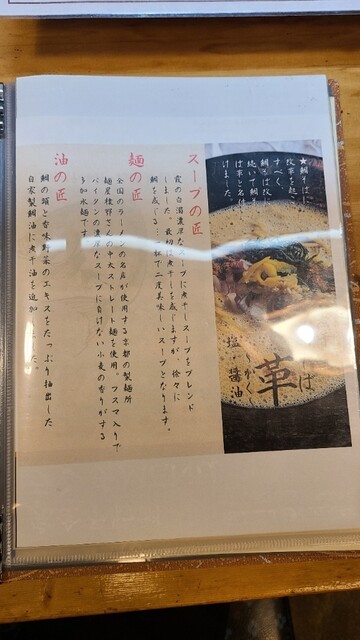 ★鯛そばに
改革を起こ
すべく、
鯛そば改に
続いて鯛そ
ば革と名付
けました。
革
塩・醤油
スープの匠
しました。最初に煮干しを感じますが、徐々に
鯛を感じる
で二度美味しいスープとなります。
麺の匠
全国のラーメンの名店が使用する京都の製麺所
麺屋棣鄂さんの中太ストレート麺を使用。フスマ入りで
パイタンの濃厚なスープに負けない小麦の香りがする
多加水麺です。
油の匠
鯛の頭と香味野菜のエキスをたっぷり抽出した
自家製鯛油に煮干油を追加しました。